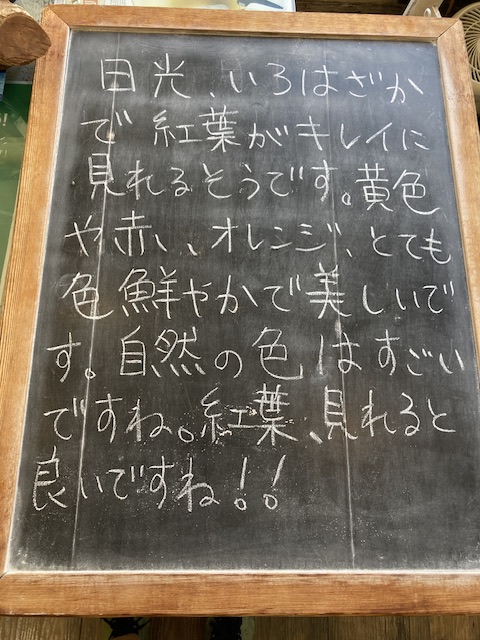 日光、いろはざか
で紅葉がキレイに
見れるそうです。黄色
や赤、、オレンジ、とても
色鮮やかで美しいで
す。自然の色はすごい
ですね。紅葉、見れると
良いですね!!